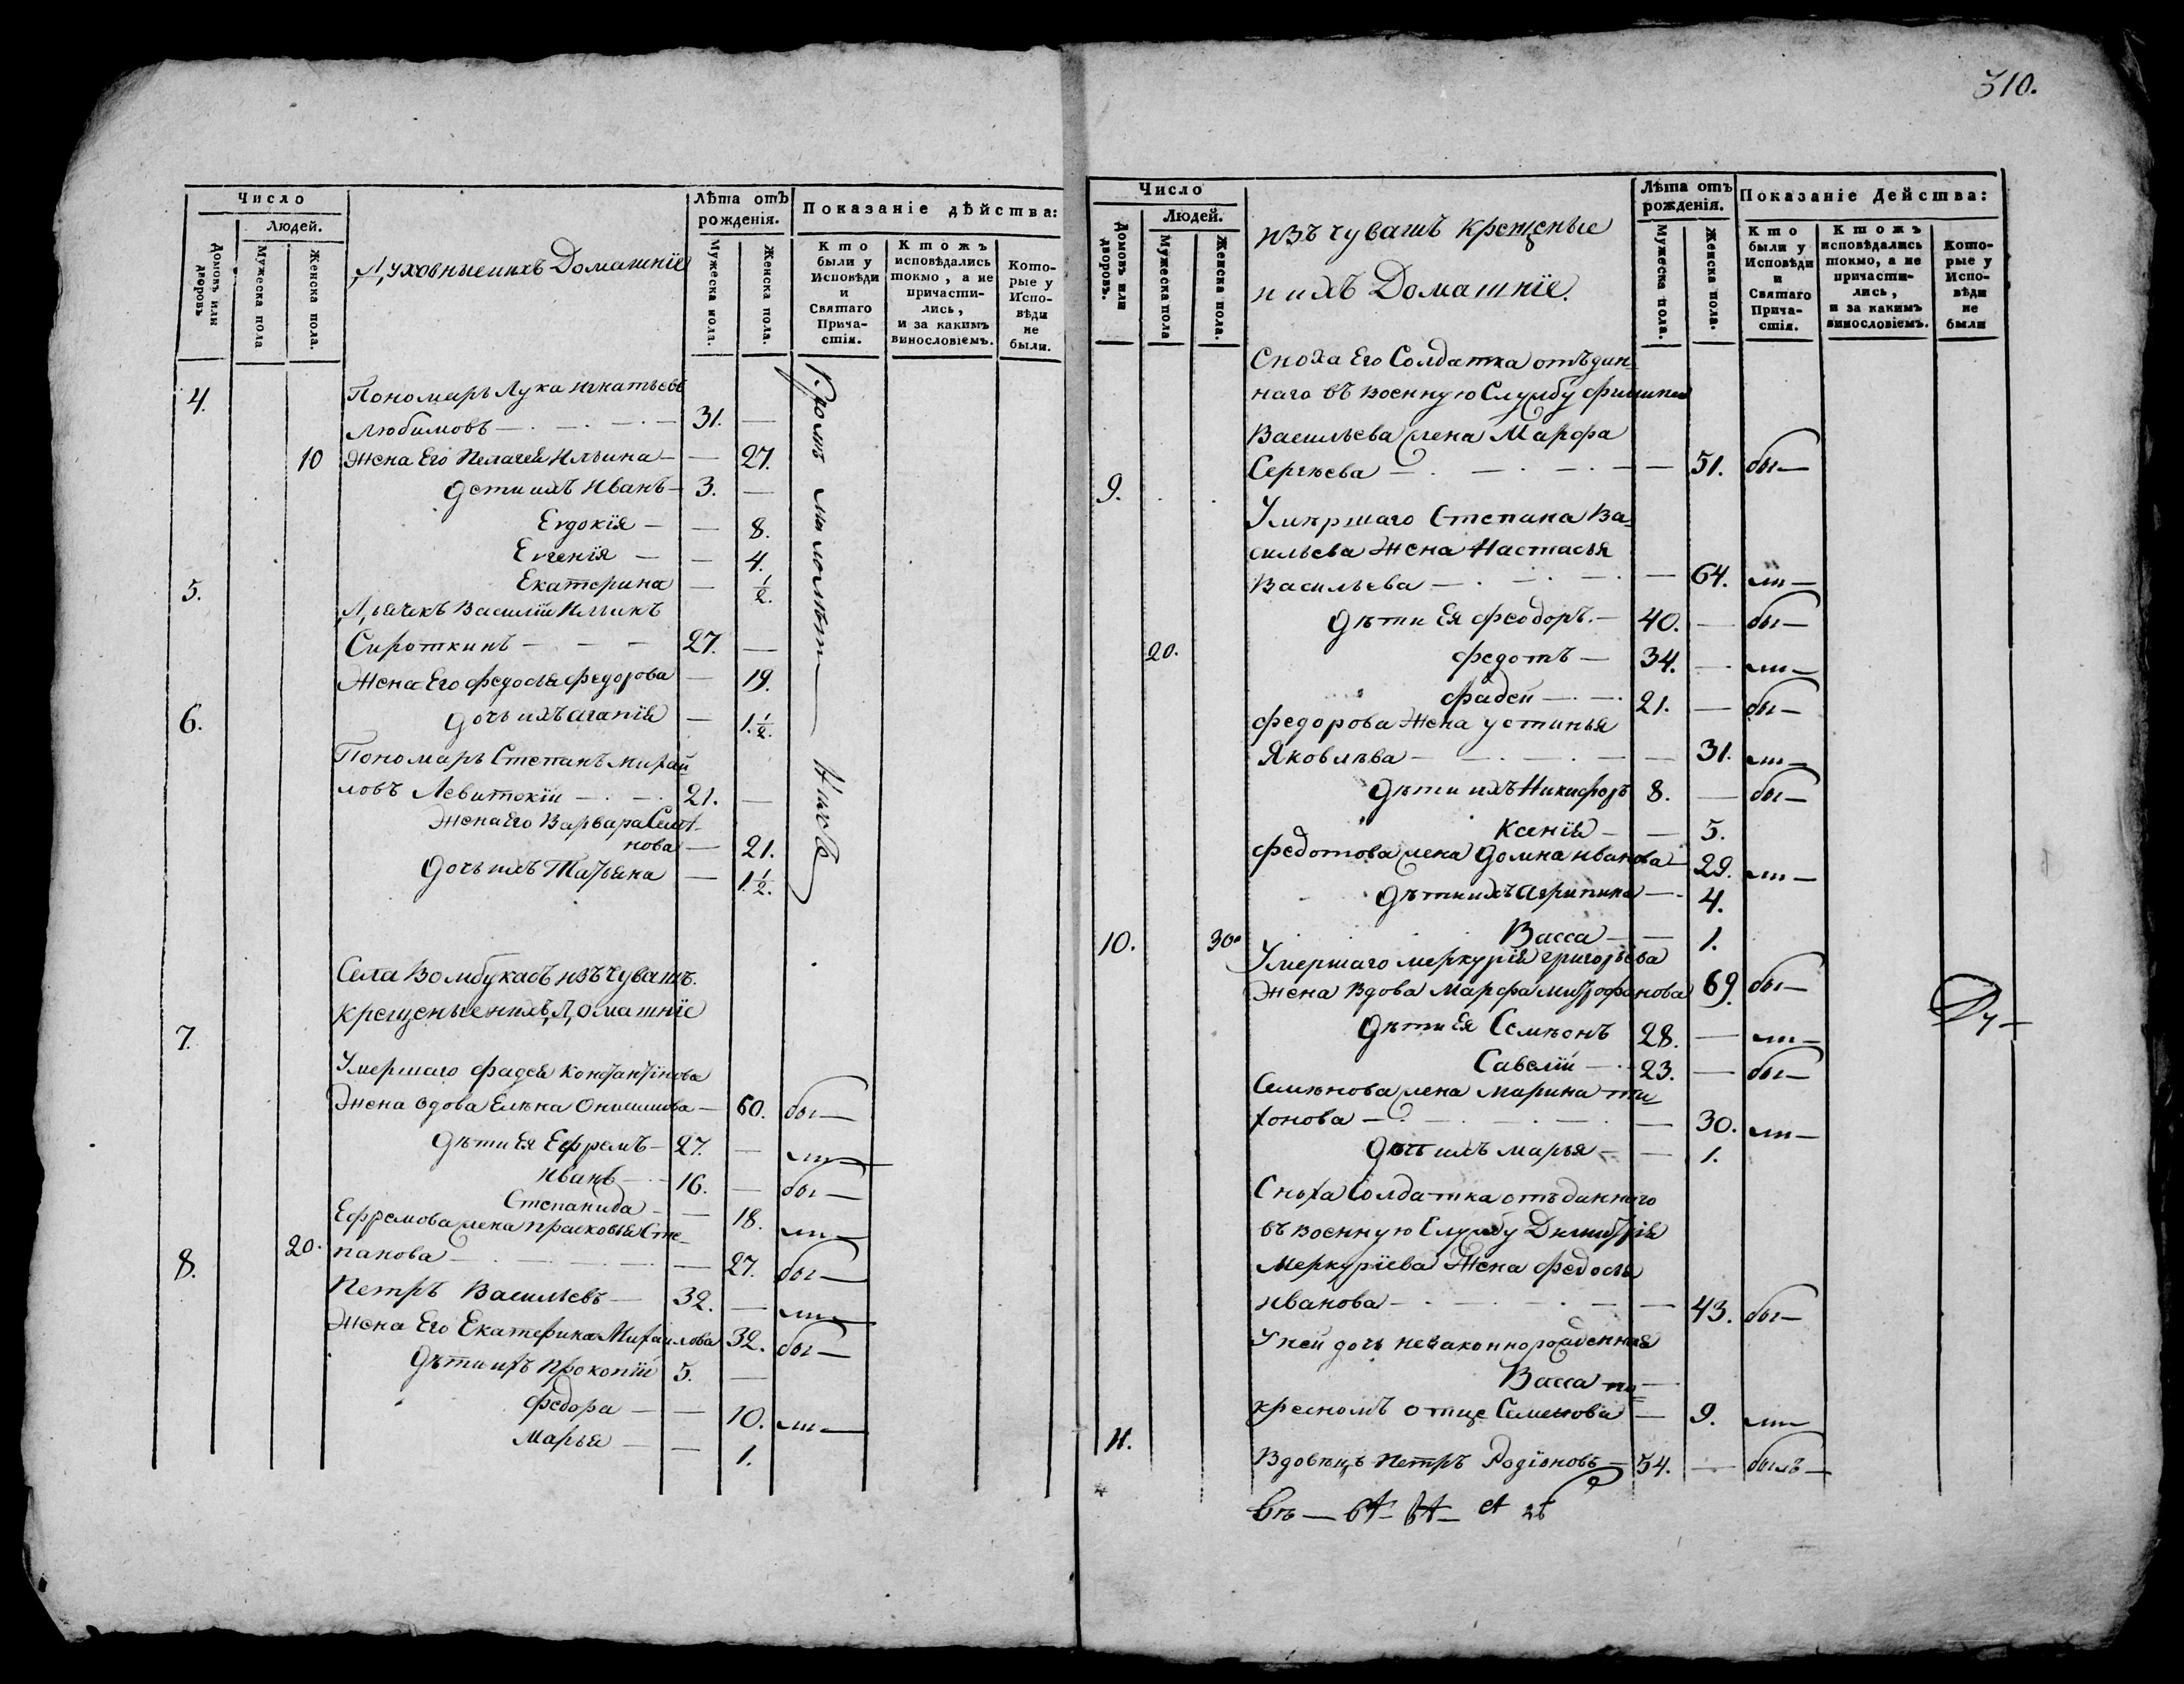 310.
Число
Людей.
Домовъ или дворовъ
Мужеска пола
Женска пола.
Духовные и ихъ Домашніе
Лѣта отъ рожденія.
Мужеска пола.
Женска пола.
Показаніе дѣйства:
Кто были у Исповѣди и Святаго Причастія.
Ктожъ исповѣдались токмо, а не причастились, и за какимъ винословіемъ.
Которые у Исповѣди не были.
4. Пономарь Лука Игнатьевъ
Любимовъ — 31. —
10 Жена Его Пелагея Ильина — — 27.
Дети ихъ Иванъ — 3. —
Евдокія — — 8.
Евгенія — — 4.
Екатерина — 1/2.
5. Дьячекъ Василій Ильинъ
Сироткинъ — 27. —
Жена Его Федосья Федорова — 19.
6. Дочь ихъ Агапія — 1.1/2.
Пономарь Степанъ Михай
ловъ Левитскій — 21. —
Жена Его Варвара Семе
нова — 21.
Дочь ихъ Татьяна — 1.1/2.
Кромѣ малолѣт
Села Бомбукасъ изъ Чувашъ
крещеные и ихъ Домашніе
7. Умершаго Фадея Константинова
Жена вдова Елена Онисимова — 60. бы —
Дѣти Ея Ефремъ — 27. — ли —
Иванъ — 16. — бы —
Степанида — — 18. ли —
Ефремова жена Прасковья Сте-
20. панова — — 27. бы —
8. Петръ Васильевъ — 32. — ли —
Жена Его Екатерина Михаилова 32. бы —
Дѣти ихъ Прокопій 5. —
Федора — — 10. ли —
Марья — — 1.
Число
Людей.
Домовъ или дворовъ.
Мужеска пола
Женска пола.
изъ чувашъ крещеные
и ихъ Домашніе.
Лѣта отъ рожденія.
Мужеска пола.
Женска пола.
Показаніе Действа:
Кто были у Исповѣди и Святаго Причастія.
Ктожъ исповѣдались токмо, а не причастились, и за какимъ винословіемъ.
Которые у Исповѣди не были
Сноха Его Солдатка отъдан
наго въ военную Службу Филипа
Васильева жена Марфа
Сергѣева — — 51. бы —
9. Умѣршаго Степана Ва-
сильева Жена Настасья
Васильева — — 64. ли —
Дѣти Ея Феодоръ. — 40. — бы —
20. Федотъ — 34. — ли —
Фадей — 21. — бы —
Федорова Жена Устинья
Яковлѣва — — 31. ли —
Дѣти ихъ Никифоръ 8. — бы —
Ксенія — — 5.
Федотова жена Домна Иванова — 29. ли —
Дѣти ихъ Агрипина — 4.
10. 30. Васса — — 1.
Умершаго Меркурія Григорьева
Жена Вдова Марфа Митрофанова 69. бы —
Дѣти Ея Семѣонъ 28. — ли —
Савелій — 23. — бы —
Семѣнова жена Марина Ти-
хонова — — 30. ли —
Дочь ихъ Марья — — 1.
Сноха Солдатка отъданнаго
въ военную Службу Димитрія
Меркуріева Жена Федосья
Иванова — — 43. бы —
У ней дочь незаконнорожденная
Васса по
кресномъ отце Семенова — 9. ли —
11. Вдовецъ Петръ Родіоновъ — 54. — былъ —